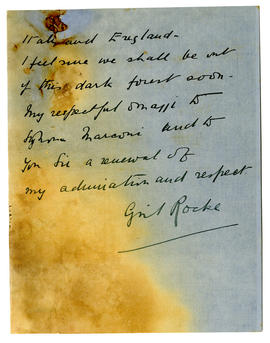 Italy and England -
I feel sure we shall be out
of this dark forest soon -
My respectful omaggi to
Signora Marconi and to
You Sir a renewal of
my admiration and respect
Rocke